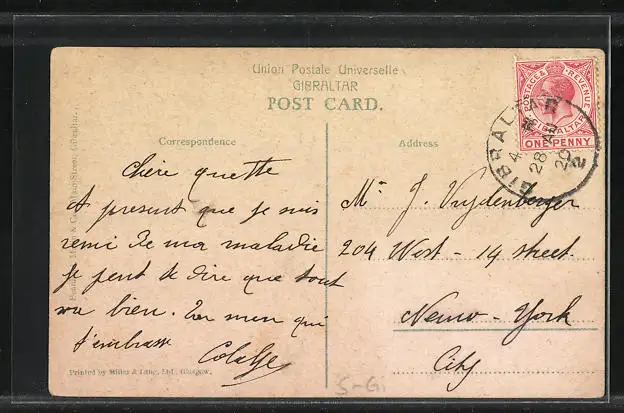 Union Postale Universelle
GIBRALTAR
POST CARD.
Correspondence
Address
POSTAGE & REVENUE
GIBRALTAR
ONE PENNY
GIBRALTAR
4
28 AP
20
2
Chère quette
A present que je suis
remi de ma maladie
je peut te dire que tout
va bien. Ton men qui
t'embrasse
Mr J. Vrydenberger
204 West - 14 street
Neuw - York
City
Printed by Millar & Lang, Ltd., Glasgow.
S-Gi